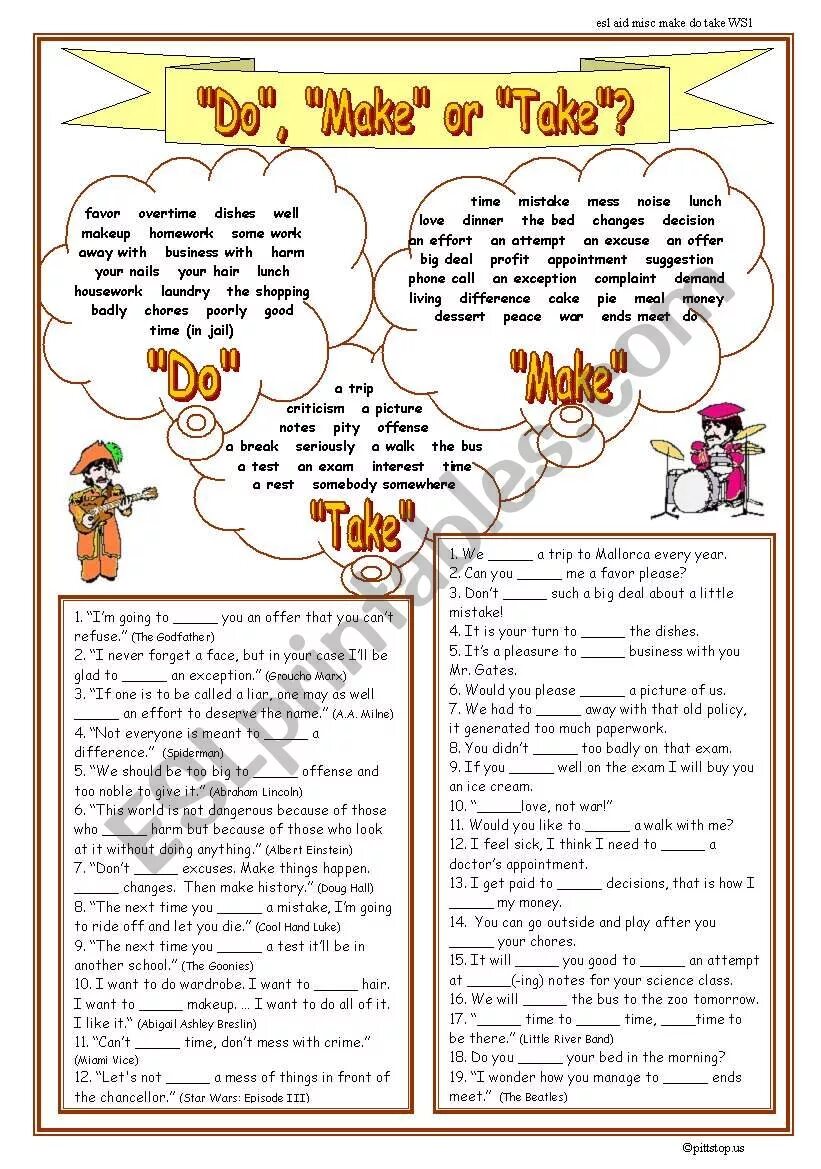 esl aid misc make do take WS1
"Do", "Make" or "Take"?
favor overtime dishes well
makeup homework some work
away with business with harm
your nails your hair lunch
housework laundry the shopping
badly chores poorly good
time (in jail)
"Do"
time mistake mess noise lunch
love dinner the bed changes decision
an effort an attempt an excuse an offer
big deal profit appointment suggestion
phone call an exception complaint demand
living difference cake pie meal money
dessert peace war ends meet do
"Make"
a trip
criticism a picture
notes pity offense
a break seriously a walk the bus
a test an exam interest time
a rest somebody somewhere
"Take"
1. "I'm going to ______ you an offer that you can't
refuse." (The Godfather)
2. "I never forget a face, but in your case I'll be
glad to ______ an exception." (Groucho Marx)
3. "If one is to be called a liar, one may as well
______ an effort to deserve the name." (A.A. Milne)
4. "Not everyone is meant to ______ a
difference." (Spiderman)
5. "We should be too big to ______ offense and
too noble to give it." (Abraham Lincoln)
6. "This world is not dangerous because of those
who ______ harm but because of those who look
at it without doing anything." (Albert Einstein)
7. "Don't ______ excuses. Make things happen.
______ changes. Then make history." (Doug Hall)
8. "The next time you ______ a mistake, I'm going
to ride off and let you die." (Cool Hand Luke)
9. "The next time you ______ a test it'll be in
another school." (The Goonies)
10. I want to do wardrobe. I want to ______ hair.
I want to ______ makeup. ... I want to do all of it.
I like it." (Abigail Ashley Breslin)
11. "Can't ______ time, don't mess with crime."
(Miami Vice)
12. "Let's not ______ a mess of things in front of
the chancellor." (Star Wars: Episode III)
1. We ______ a trip to Mallorca every year.
2. Can you ______ me a favor please?
3. Don't ______ such a big deal about a little
mistake!
4. It is your turn to ______ the dishes.
5. It's a pleasure to ______ business with you
Mr. Gates.
6. Would you please ______ a picture of us.
7. We had to ______ away with that old policy,
it generated too much paperwork.
8. You didn't ______ too badly on that exam.
9. If you ______ well on the exam I will buy you
an ice cream.
10. "______love, not war!"
11. Would you like to ______ a walk with me?
12. I feel sick, I think I need to ______ a
doctor's appointment.
13. I get paid to ______ decisions, that is how I
______ my money.
14. You can go outside and play after you
______ your chores.
15. It will ______ you good to ______ an attempt
at ______(-ing) notes for your science class.
16. We will ______ the bus to the zoo tomorrow.
17. "______ time to ______ time, _____time to
be there." (Little River Band)
18. Do you ______ your bed in the morning?
19. "I wonder how you manage to ______ ends
meet." (The Beatles)
©pittstop.us
ESLprintables.com